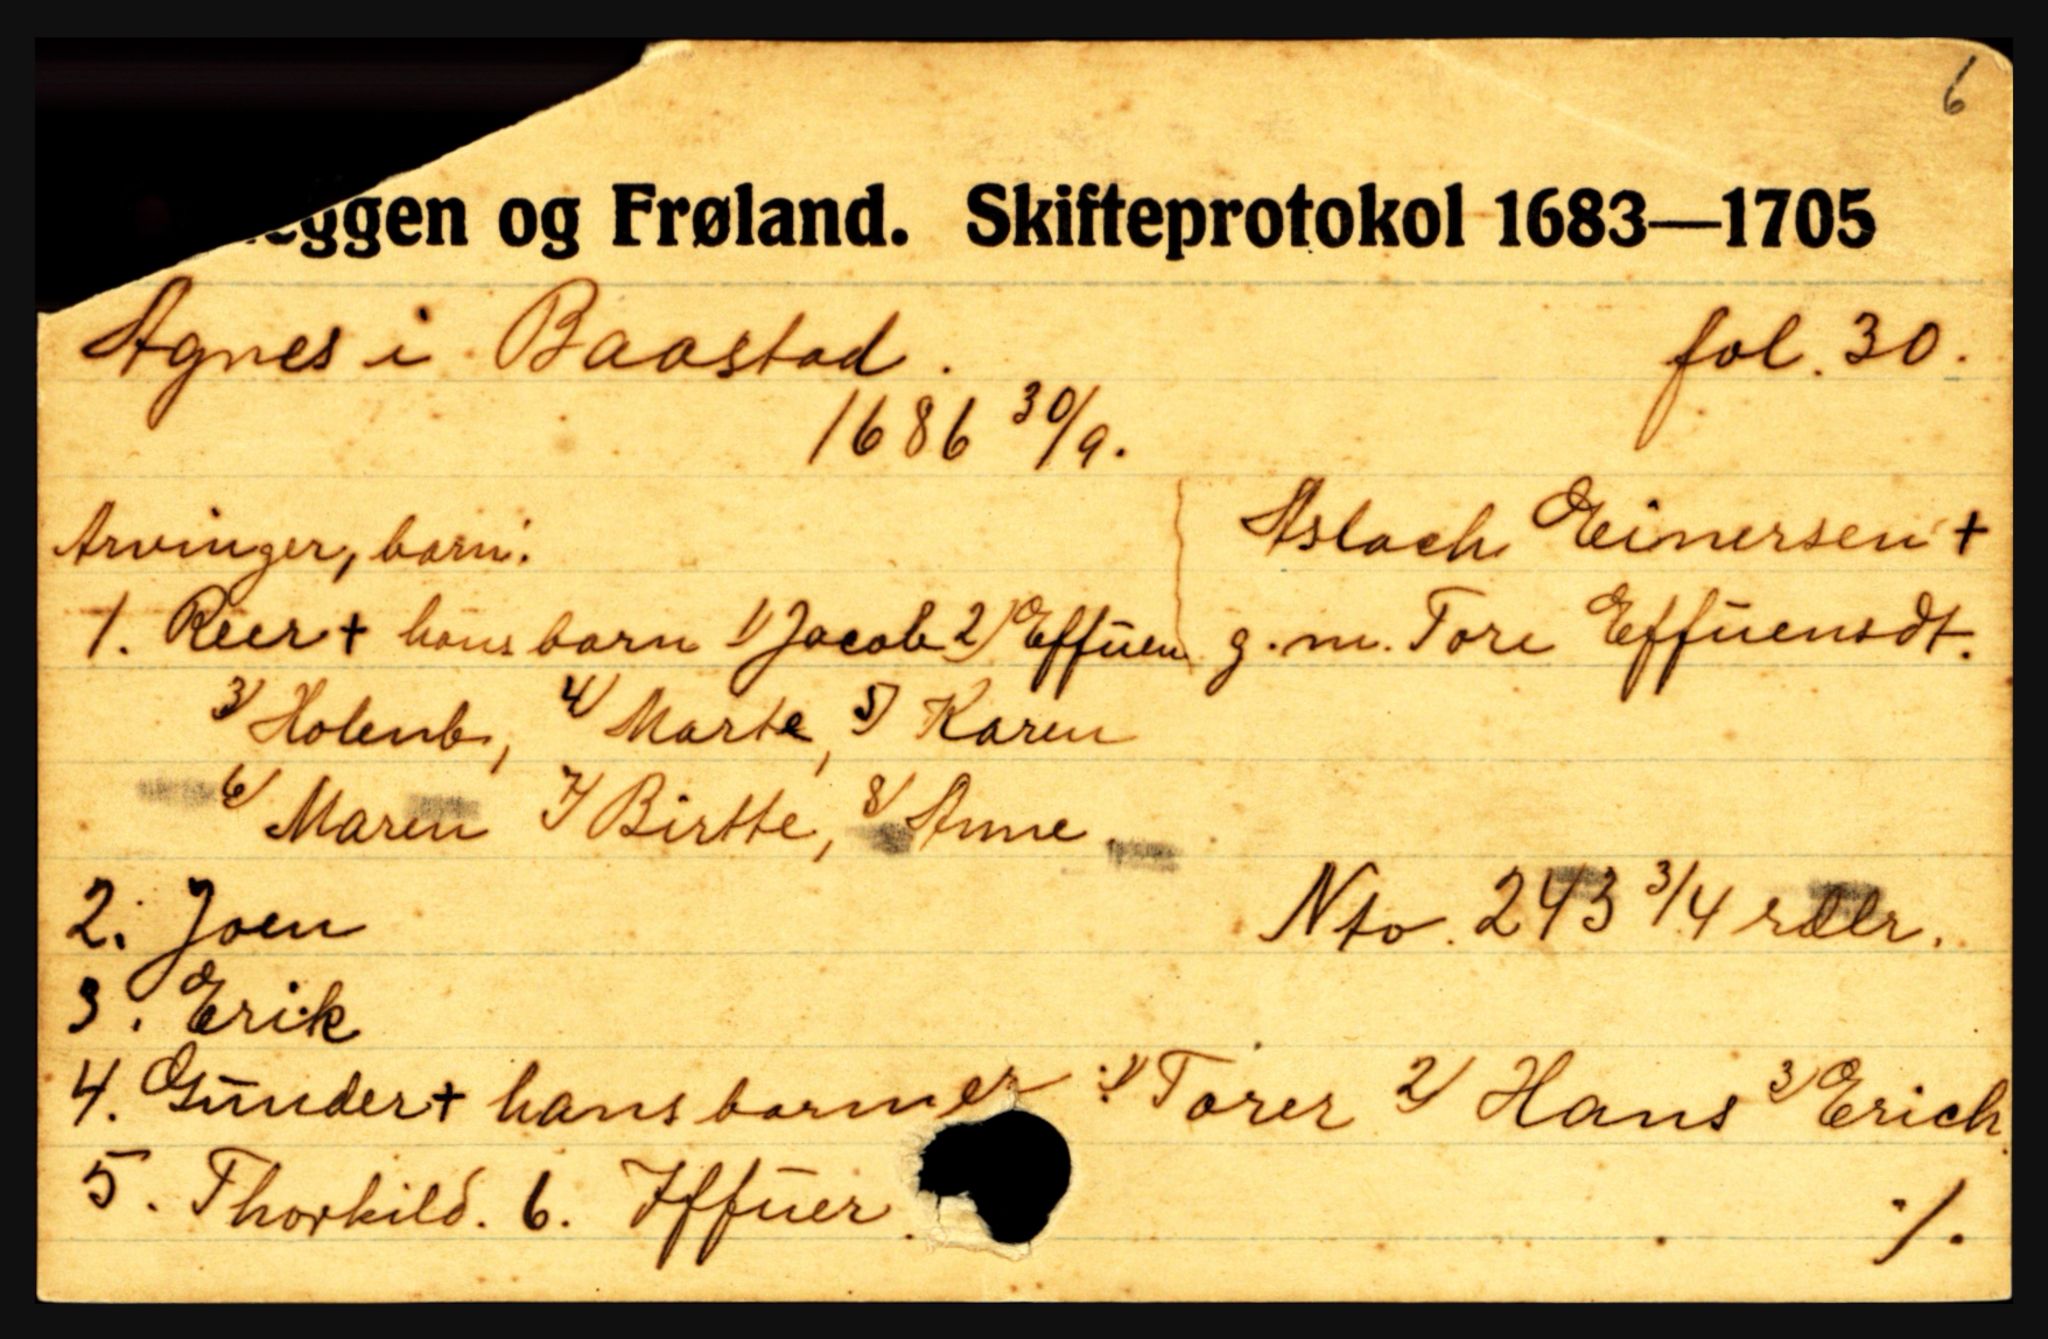 6
eggen og Frøland. Skifteprotokol 1683—1705
Agnes i Baastad. fol. 30.
1686 30/9.
Arvinger, barn: Aslach Einersen +
1. Reer + hans barn 1) Jacob 2) Effuen g. m. Tore Effuensdt.
3) Holenb, 4) Marte, 5) Karen
6) Maren 7) Birtte, 8) Anne
2. Joen Nto. 243 3/4 rdlr.
3. Erik
4. Gunder + hans barn er 1) Torer 2) Hans 3) Erich
5. Thorkild. 6. Iffuer. ·/.